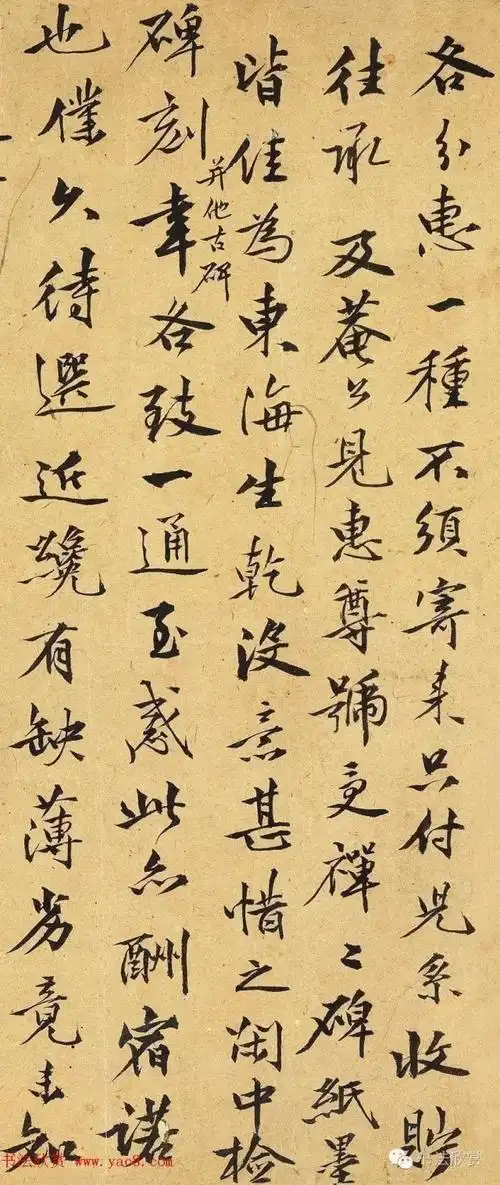 各分惠一種不須寄来只付兒系收貯
往承及菴公見惠尊號受禪二碑紙墨
皆佳為東海生乾没意甚惜之閑中檢
碑刻幸各致一通至感此亦酬宿諾
并他古碑
也僕久待選近纔有缺薄劣竟未知
书法欣赏 www.yac8.com
书法欣赏